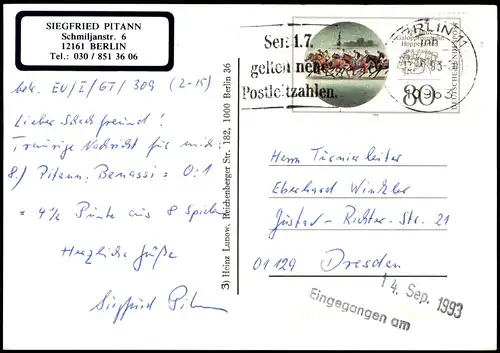 SIEGFRIED PITANN
Schmiljanstr. 6
12161 BERLIN
Tel.: 030 / 851 36 06
betr. EU/I/GT/309 (2-15)
Lieber Schachfreund!
Traurige Nachricht für mich:
8.) Pitann : Benassi = 0:1
= 4½ Punkte aus 8 Spielen
Herzliche Grüße
Siegfried Pitann
3) Heinz Lunow, Reichenberger Str. 182, 1000 Berlin 36
Seit 1.7.
gelten neue
Postleitzahlen.
BERLIN 11
Galopprennbahn
Hoppegarten
80
DEUTSCHE BUNDESPOST
Herrn Turnierleiter
Eberhard Winkler
Gustav-Richter-Str. 21
01129 Dresden
14. Sep. 1993
Eingegangen am